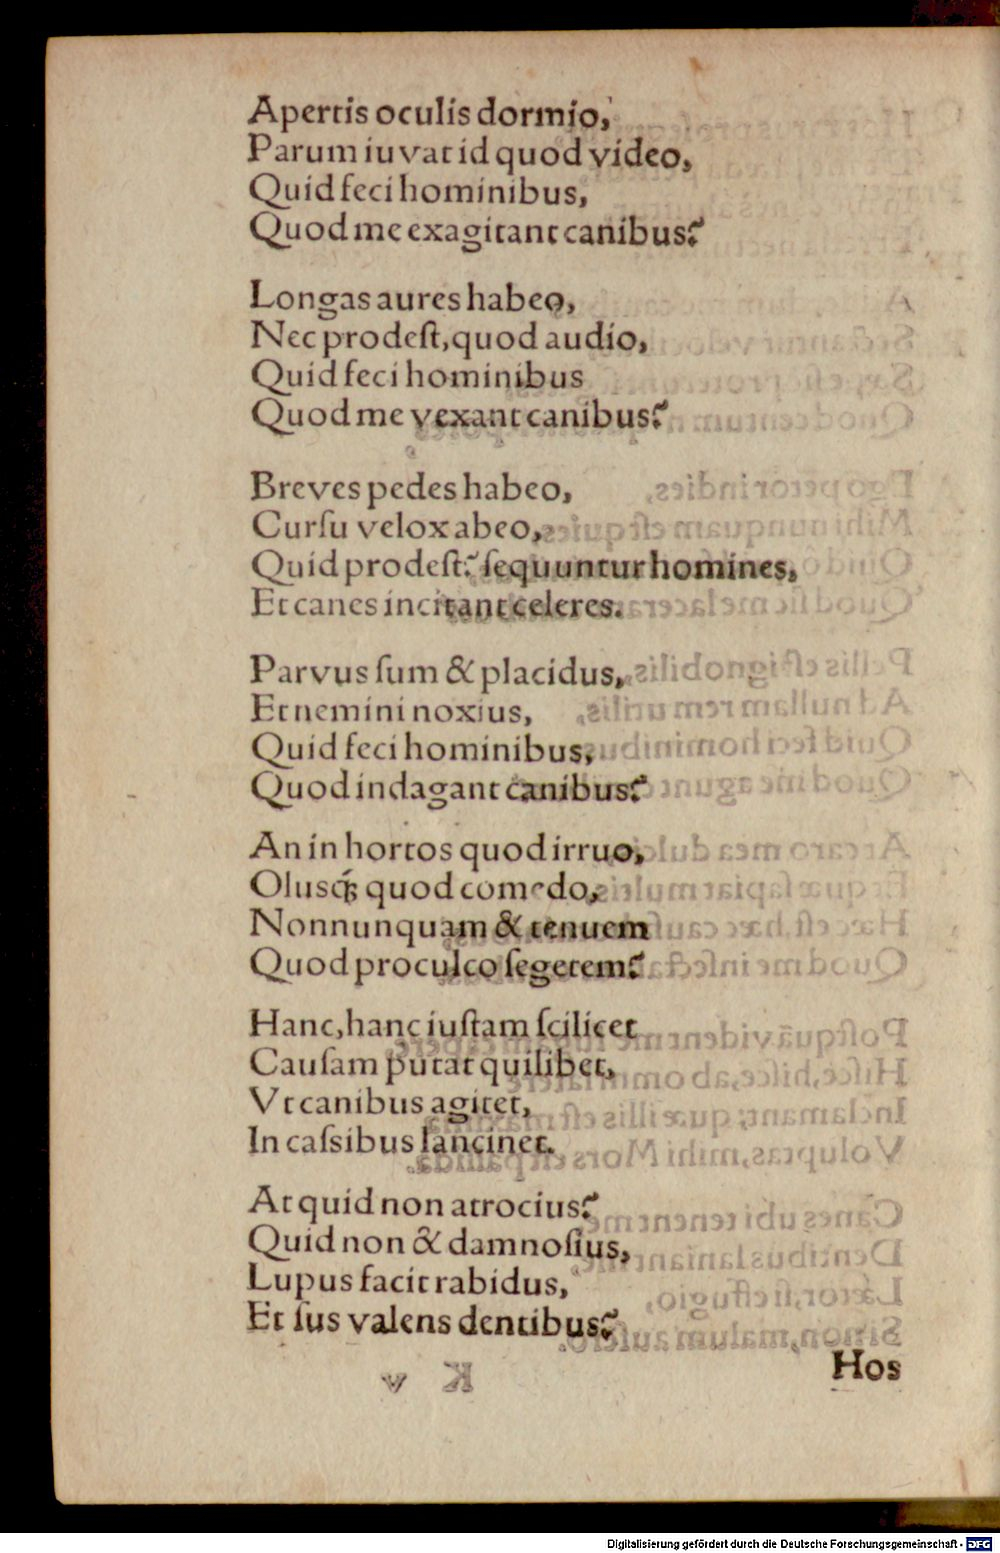 Apertis oculis dormio,
Parum iuvat id quod video,
Quid feci hominibus,
Quod me exagitant canibus?
Longas aures habeo,
Nec prodeſt, quod audio,
Quid feci hominibus
Quod me vexant canibus?
Breves pedes habeo,
Curſu velox abeo,
Quid prodeſt? ſequuntur homines,
Et canes incitant celeres.
Parvus ſum & placidus,
Et nemini noxius,
Quid feci hominibus,
Quod indagant canibus?
An in hortos quod irruo,
Oluſq́ꝫ quod comedo,
Nonnunquam & tenuem
Quod proculco ſegetem?
Hanc, hanc iuſtam ſcilicet
Cauſam putat quilibet,
Vt canibus agitet,
In caſsibus lancinet.
At quid non atrocius?
Quid non & damnoſius,
Lupus facit rabidus,
Et ſus valens dentibus?
Hos
Digitalisierung gefördert durch die Deutsche Forschungsgemeinschaft - DFG